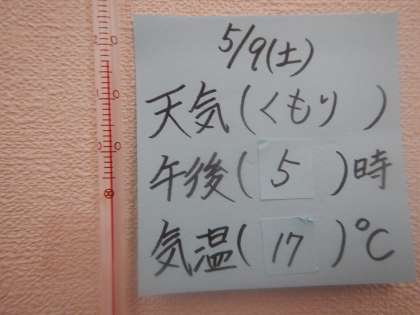 5/9(土)
天気(くもり)
午後(5)時
気温(17)℃